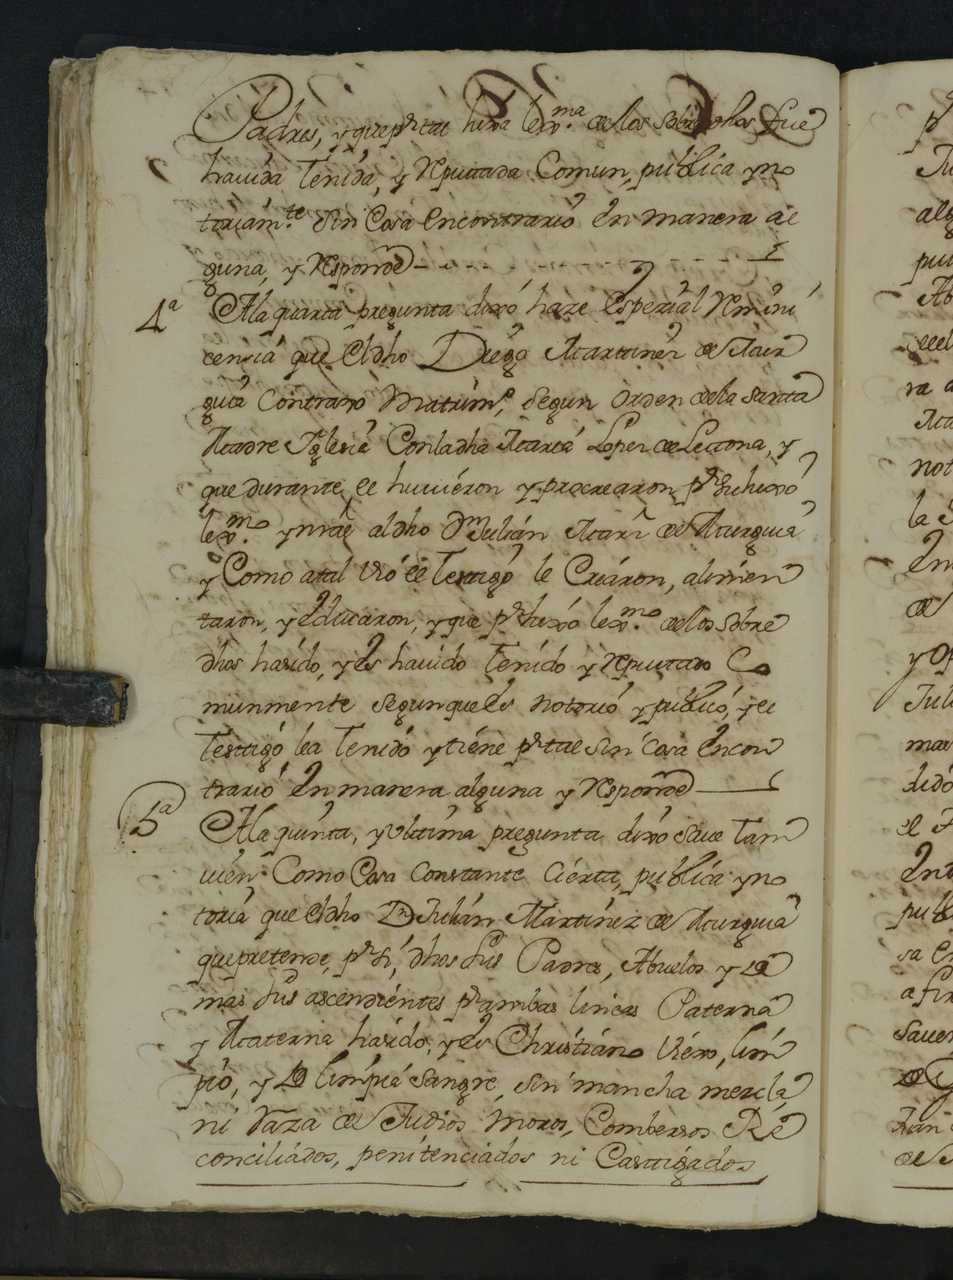 Padres, y que p.r tal hixa lex.ma de los sobredhos fue
havida tenida, y Reputada Comun, publica y no
toriam.te sin Cosa encontrario en manera al
guna, y Responde
4a A la quarta pregunta dixo haze espezial Remini
cencia que el dho Diego Martinez de Mur
guia Contraxo Matrim.o, segun orden de la santa
Madre Yglesia Con la dha Maria Lopez de Lecona, y
que durante el huvieron y procrearon p.r su hixo
lex.mo y nrãl al dho D.n Julian Marñ de Murguia
y Como a tal vio el testigo le Criaron, alimen
taron, y educaron, y que p.r hixo lex.mo de los sobre
dhos ha sido, y es havido tenido y Reputado Co
munmente segun que es notorio y publico, y el
testigo lea tenido y tiene p.r tal sin cosa encon
trario en manera alguna y Responde
5a A la quinta, y ultima pregunta dixo save tam
vien Como Cosa constante cierta, publica y no
toria que el dho D.n Julian Martinez de Murguia
que pretende, p.r si, dhos sus Padres, Abuelos y de
mas sus ascendientes p.r ambas lineas Paterna
y Materna ha sido, y es Christiano viexo, lim
pio, y de limpia sangre, sin mancha mezcla
ni Raza de Judios Moros, Combersos Re
conciliados, penitenciados ni Castigados